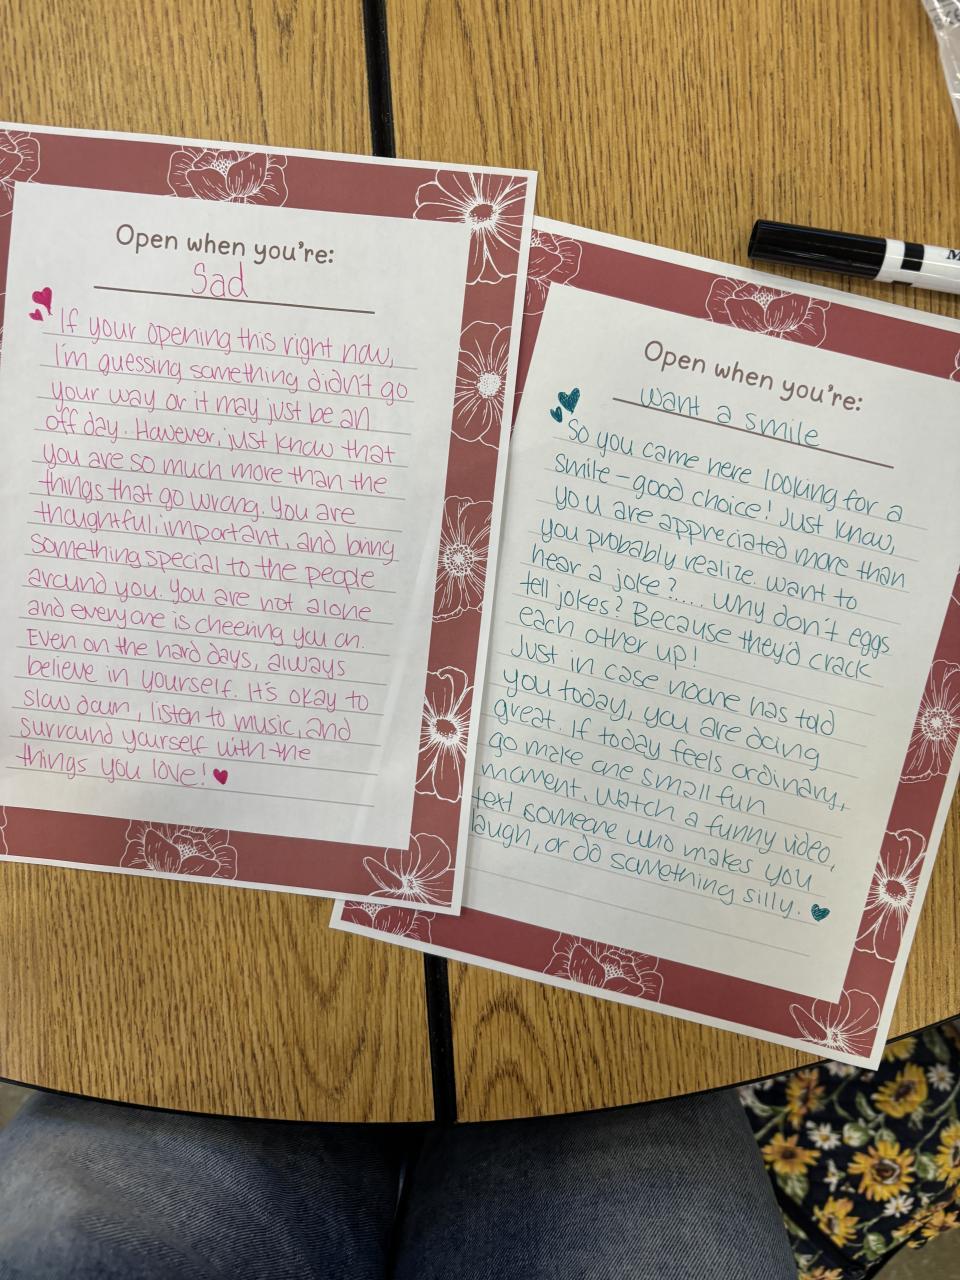 Open when you're:
Sad
If your opening this right now,
I'm guessing something didn't go
your way or it may just be an
off day. However, just know that
you are so much more than the
things that go wrong. You are
thoughtful, important, and bring
something special to the people
around you. You are not alone
and everyone is cheering you on.
Even on the hard days, always
believe in yourself. It's okay to
slow down, listen to music, and
surround yourself with the
things you love!
Open when you're:
Want a smile
So you came here looking for a
smile - good choice! Just know,
you are appreciated more than
you probably realize. Want to
hear a joke?.... Why don't eggs
tell jokes? Because they'd crack
each other up!
Just in case noone has told
you today, you are doing
great. If today feels ordinary,
go make one small fun
moment. Watch a funny video,
text someone who makes you
laugh, or do something silly.